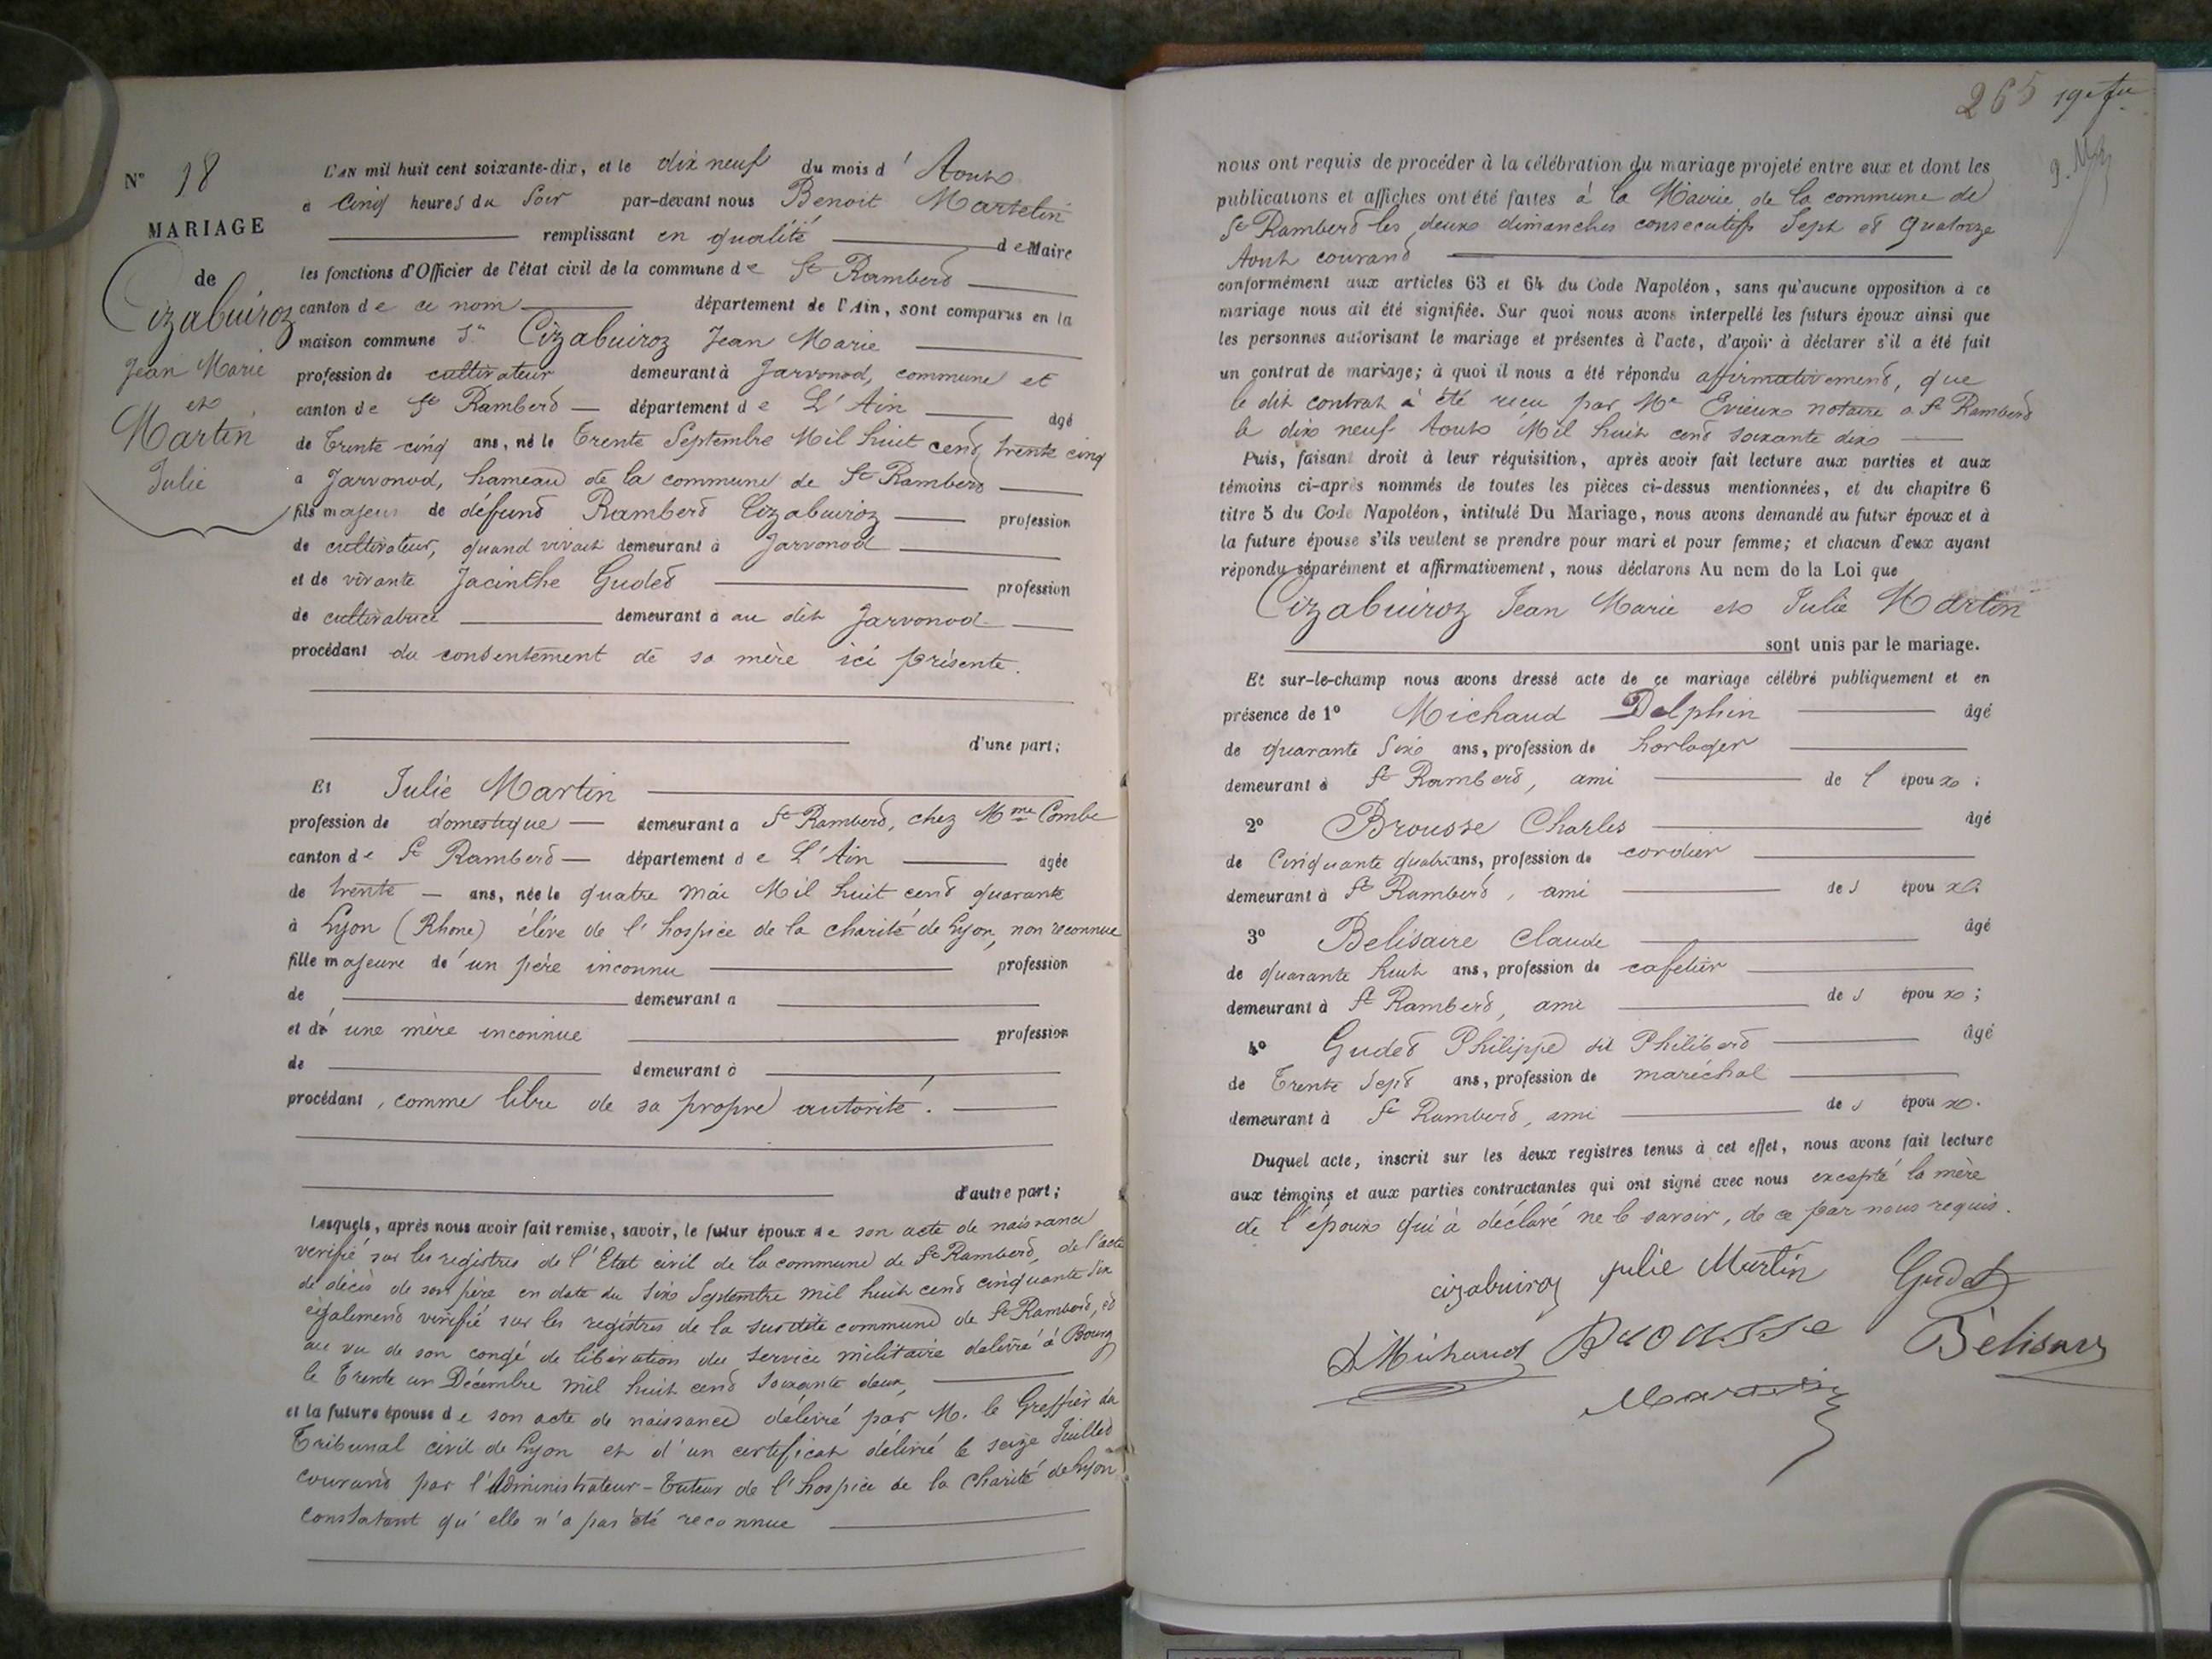 N° 18
MARIAGE
de
Cizabuiroz
Jean Marie
et
Martin
Julie
L'AN mil huit cent soixante-dix, et le dix neuf du mois d' Aout
a Cinq heures du Soir par-devant nous Benoit Martelin
remplissant en qualité de Maire
les fonctions d'Officier de l'état civil de la commune de St Rambert
canton de ce nom département de l'Ain, sont comparus en la
maison commune Sr Cizabuiroz Jean Marie
profession de cultivateur demeurant à Jarvonod, commune et
canton de St Rambert département de L'Ain agé
de Trente cinq ans, né le Trente Septembre Mil huit cent trente cinq
a Jarvonod, hameau de la commune de St Rambert
fils majeur de défunt Rambert Cizabuiroz profession
de cultivateur, quand vivait demeurant à Jarvonod
et de vivante Jacinthe Gudet profession
de cultivatrice demeurant à au dit Jarvonod
procédant du consentement de sa mère ici présente.
d'une part;
Et Julie Martin
profession de domestique demeurant a St Rambert, chez Mme Combe
canton de St Rambert département de L'Ain agée
de trente ans, née le quatre mai Mil huit cent quarante
à Lyon (Rhone) élève de l'hospice de la charité de Lyon, non reconnue
fille majeure de un père inconnu profession
de demeurant a
et de une mère inconnue profession
de demeurant à
procédant, comme libre de sa propre autorité.
d'autre part;
Lesquels, après nous avoir fait remise, savoir, le futur époux de son acte de naissance
verifié sur les registres de l'Etat civil de la commune de St Rambert, de l'acte
de décès de son père en date du Six Septembre mil huit cent cinquante six
egalement verifié sur les registres de la susdite commune de St Rambert, et
au vu de son congé de libération du service militaire delivré à Bourg
le Trente un Décembre mil huit cent soixante deux,
et la future épouse de son acte de naissance délivré par M. le Greffier du
Tribunal civil de Lyon et d'un certificat délivré le seize Juillet
courant par l'Administrateur-Tuteur de l'hospice de la Charité de Lyon
constatant qu'elle n'a pas été reconnue
265
nous ont requis de procéder à la célébration du mariage projeté entre eux et dont les
publications et affiches ont été faites à la Mairie de la commune de
St Rambert les deux dimanches consecutifs Sept et Quatorze
Aout courant
conformément aux articles 63 et 64 du Code Napoléon, sans qu'aucune opposition à ce
mariage nous ait été signifiée. Sur quoi nous avons interpellé les futurs époux ainsi que
les personnes autorisant le mariage et présentes à l'acte, d'avoir à déclarer s'il a été fait
un contrat de mariage; à quoi il nous a été répondu affirmativement, que
le dit contrat a été reçu par Me Evieux notaire a St Rambert
le dix neuf Aout Mil huit cent soixante dix
Puis, faisant droit à leur réquisition, après avoir fait lecture aux parties et aux
témoins ci-après nommés de toutes les pièces ci-dessus mentionnées, et du chapitre 6
titre 5 du Code Napoléon, intitulé Du Mariage, nous avons demandé au futur époux et à
la future épouse s'ils veulent se prendre pour mari et pour femme; et chacun d'eux ayant
répondu séparément et affirmativement, nous déclarons Au nom de la Loi que
Cizabuiroz Jean Marie et Julie Martin
sont unis par le mariage.
Et sur-le-champ nous avons dressé acte de ce mariage célébré publiquement et en
présence de 1° Michaud Delphin âgé
de quarante Six ans, profession de horloger
demeurant à St Rambert, ami de l époux;
2° Brousse Charles âgé
de Cinquante quatre ans, profession de cordier
demeurant à St Rambert, ami de s époux.
3° Belisaire Claude âgé
de quarante huit ans, profession de cafetier
demeurant à St Rambert, ami de s époux;
4° Gudet Philippe dit Philibert âgé
de Trente Sept ans, profession de maréchal
demeurant à St Rambert, ami de s époux.
Duquel acte, inscrit sur les deux registres tenus à cet effet, nous avons fait lecture
aux témoins et aux parties contractantes qui ont signé avec nous excepté la mère
de l'époux qui à déclaré ne le savoir, de ce par nous requis.
cizabuiroz julie Martin Gudet
D Michaud Brousse Bélisaire